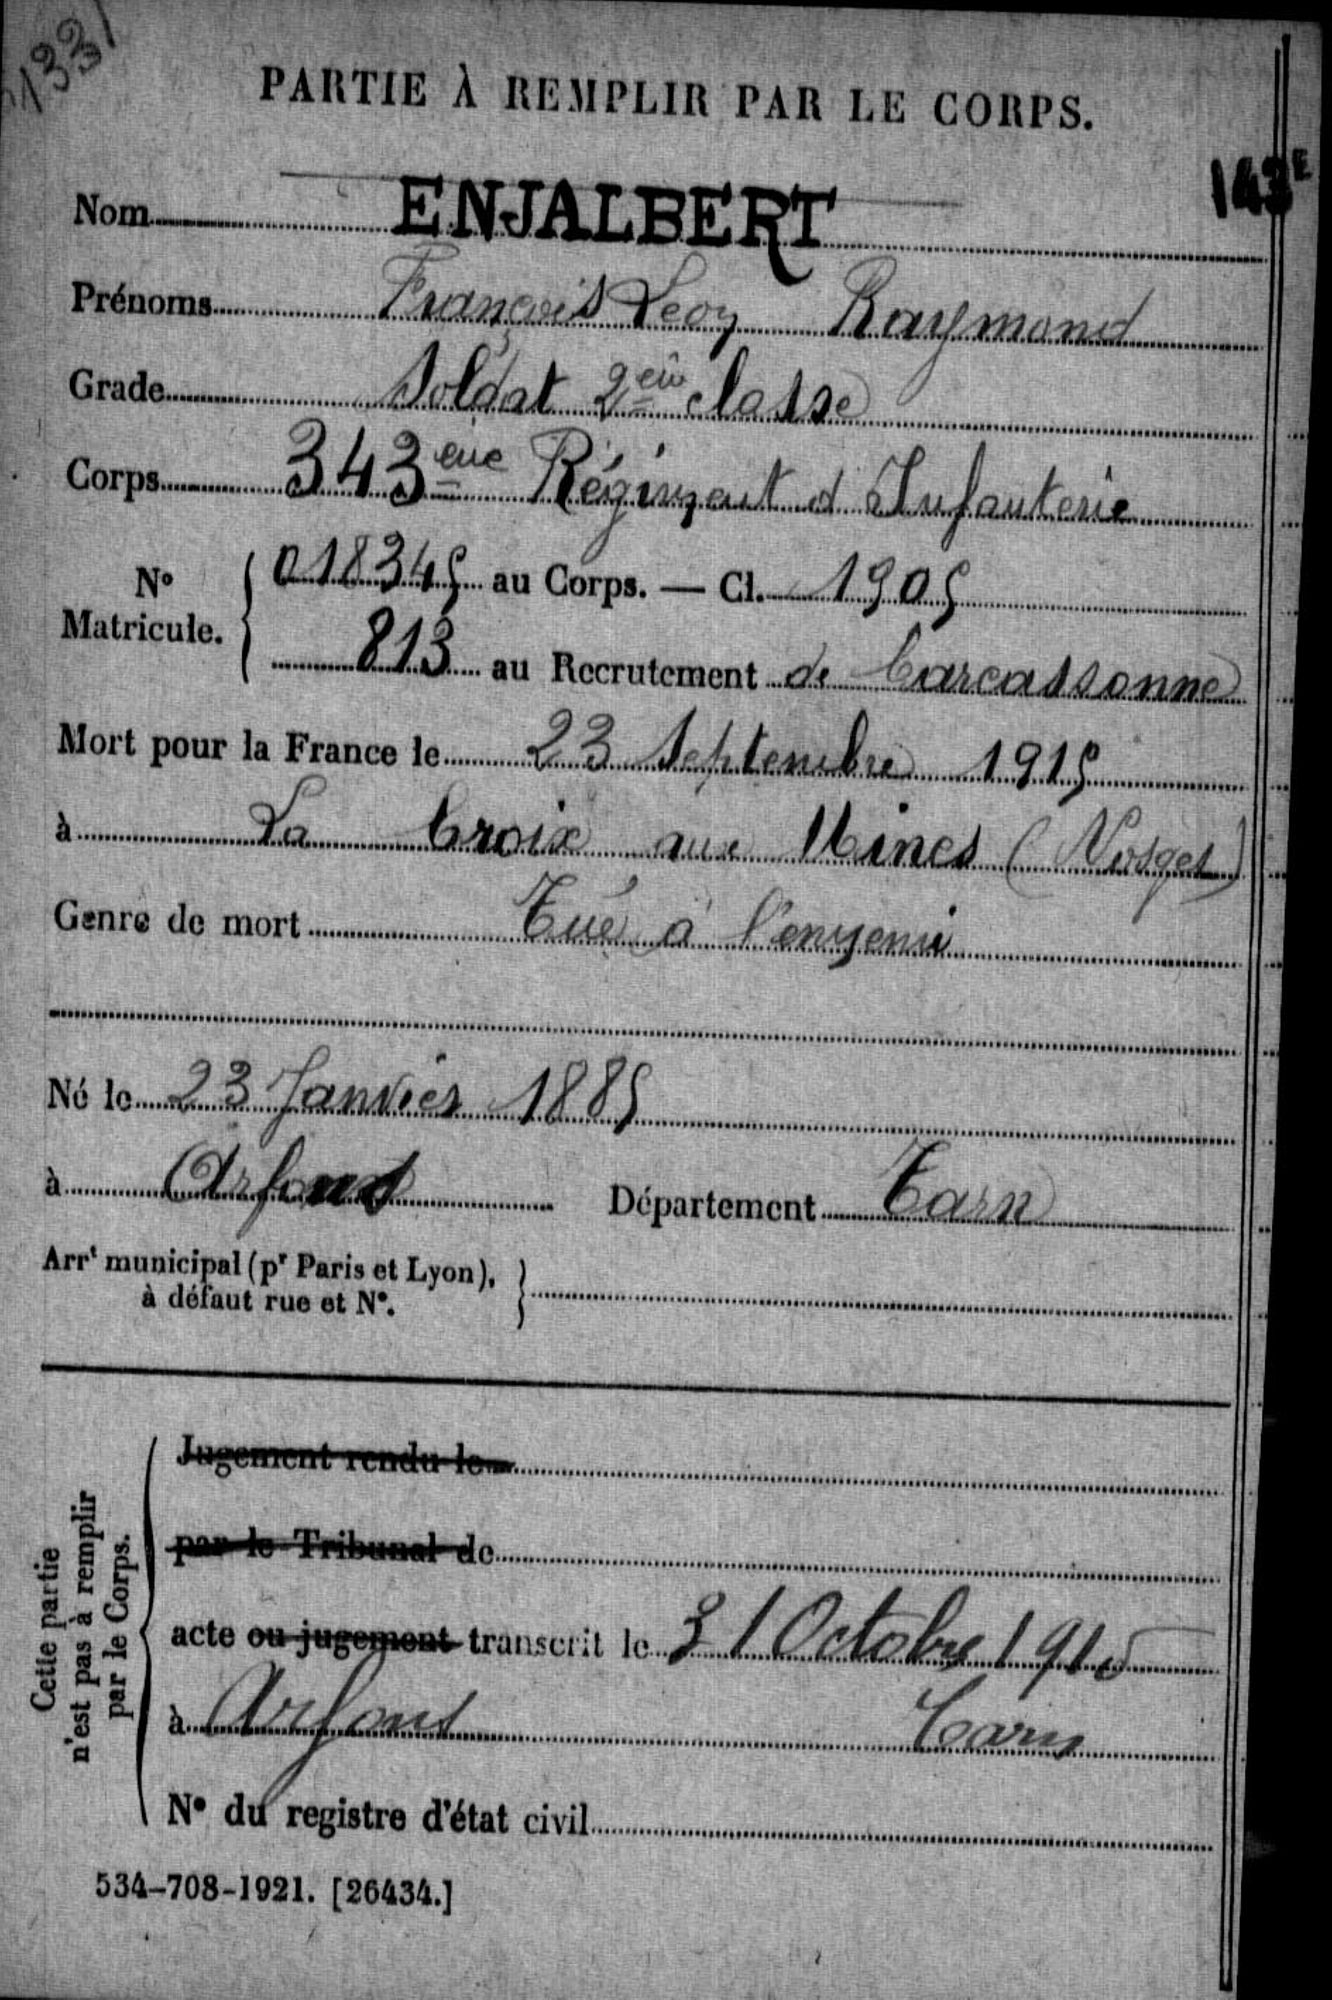 PARTIE À REMPLIR PAR LE CORPS.
143E
Nom ENJALBERT
Prénoms François Léon Raymond
Grade Soldat 2eme classe
Corps 343eme Régiment d'Infanterie
No Matricule. { 018345 au Corps. — Cl. 1905
813 au Recrutement de Carcassonne
Mort pour la France le 23 Septembre 1915
à La Croix aux Mines (Vosges)
Genre de mort Tué à l'ennemi
Né le 23 Janvier 1885
à Arfons Département Tarn
Arrt municipal (pr Paris et Lyon), à défaut rue et No. }
Cette partie n'est pas à remplir par le Corps.
Jugement rendu le
par le Tribunal de
acte ou jugement transcrit le 31 Octobre 1915
à Arfons Tarn
No du registre d'état civil
534-708-1921. [26434.]